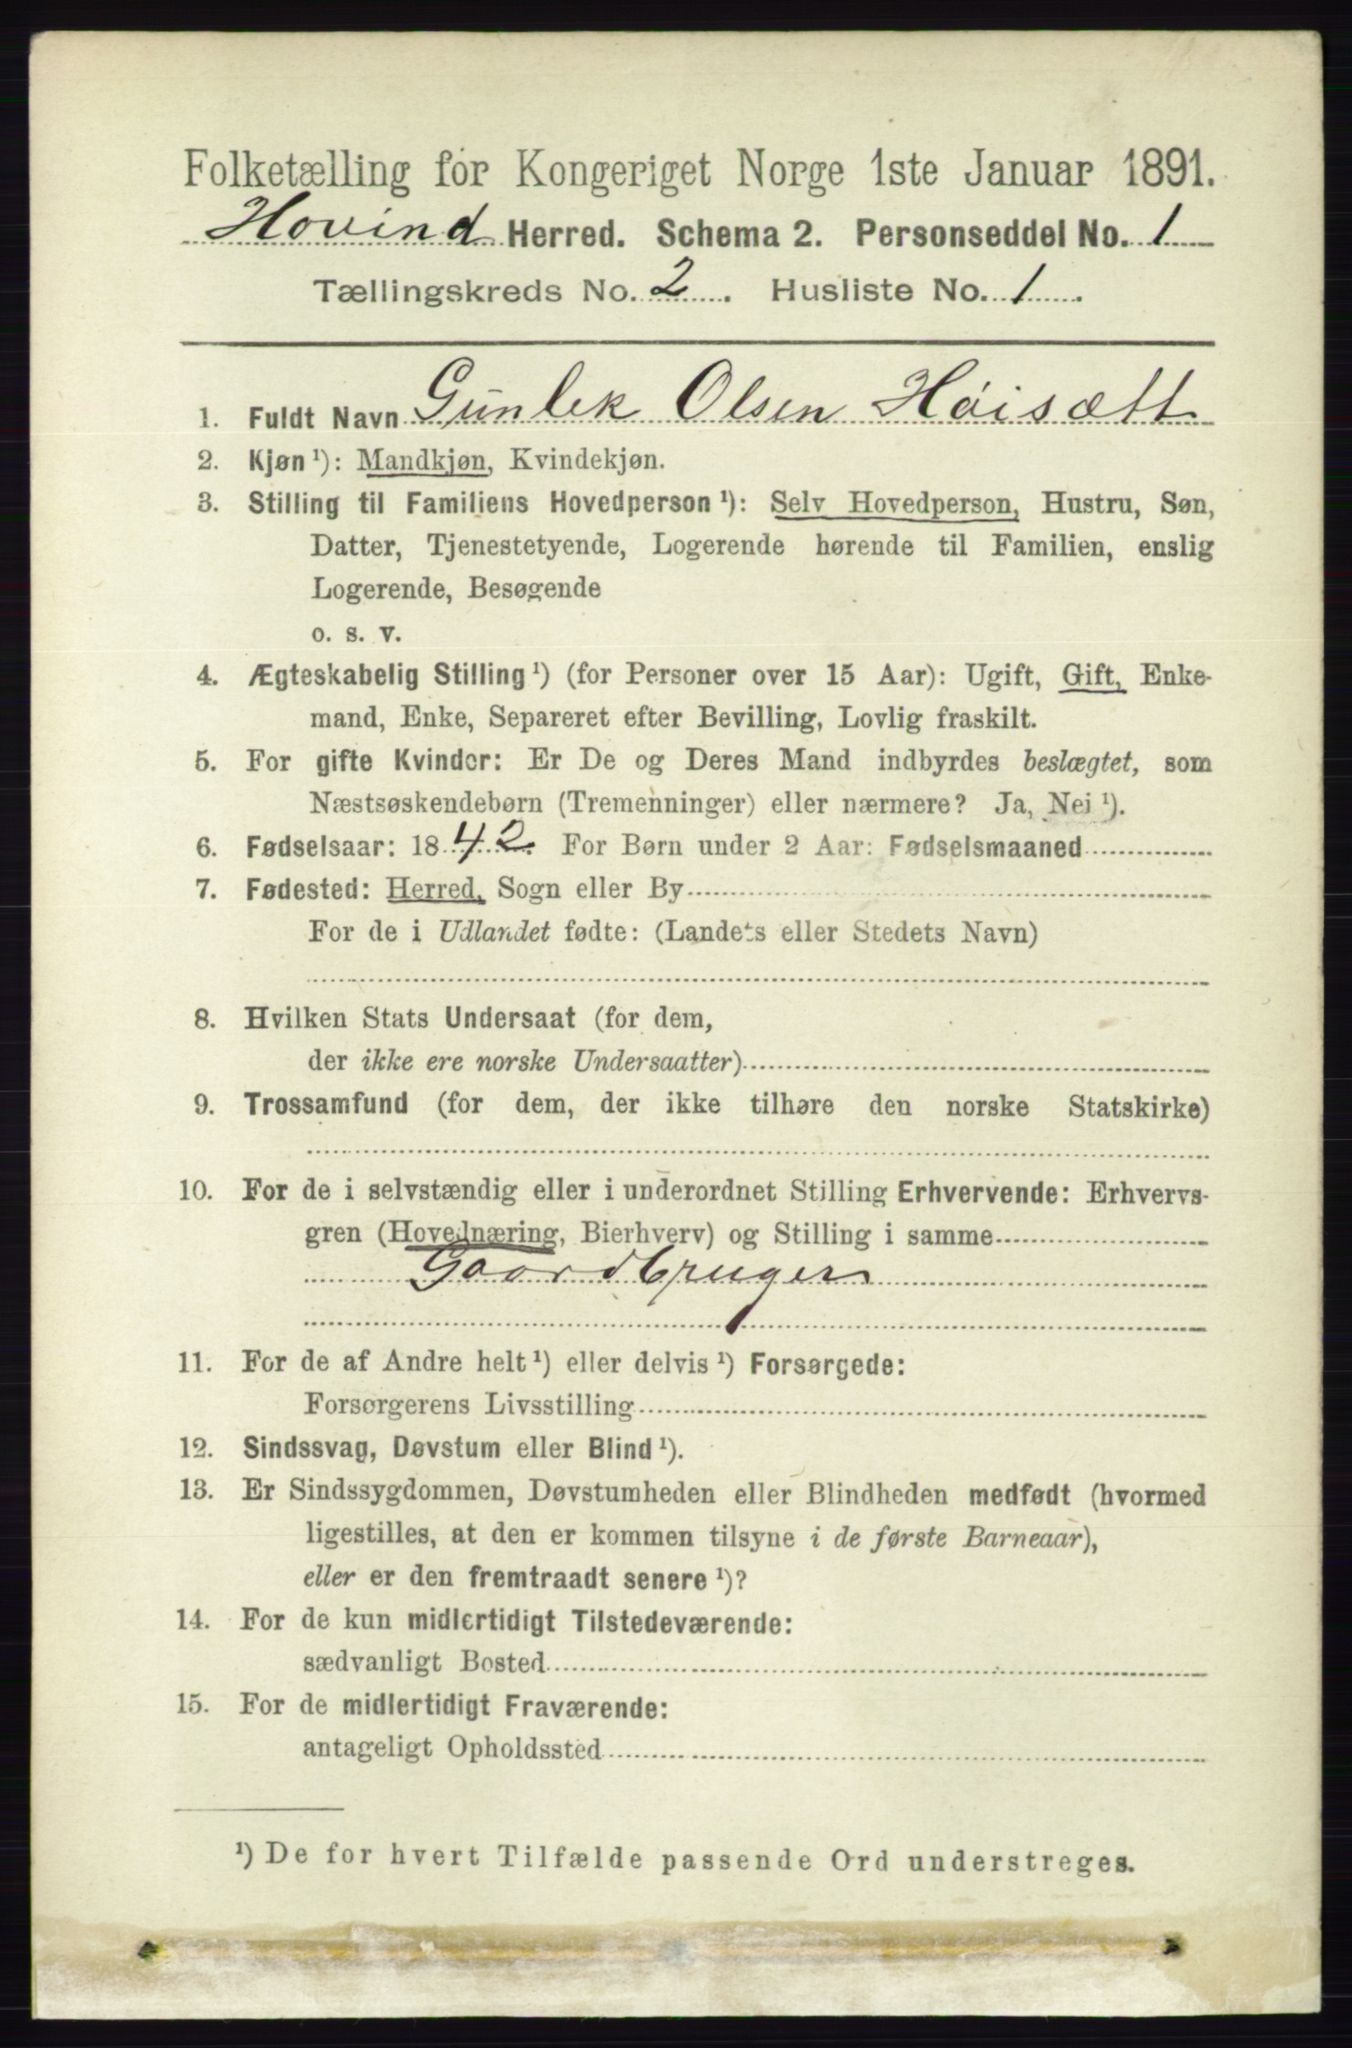 Folketælling for Kongeriget Norge 1ste Januar 1891.
Hovind Herred. Schema 2. Personseddel No. 1
Tællingskreds No. 2. Husliste No. 1.
1. Fuldt Navn Gunlek Olsen Höisætt
2. Kjøn ¹): Mandkjøn, Kvindekjøn.
3. Stilling til Familiens Hovedperson ¹): Selv Hovedperson, Hustru, Søn,
Datter, Tjenestetyende, Logerende hørende til Familien, enslig
Logerende, Besøgende
o. s. v.
4. Ægteskabelig Stilling ¹) (for Personer over 15 Aar): Ugift, Gift, Enke-
mand, Enke, Separeret efter Bevilling, Lovlig fraskilt.
5. For gifte Kvinder: Er De og Deres Mand indbyrdes beslægtet, som
Næstsøskendebørn (Tremenninger) eller nærmere? Ja, Nei ¹).
6. Fødselsaar: 1842. For Børn under 2 Aar: Fødselsmaaned
7. Fødested: Herred, Sogn eller By
For de i Udlandet fødte: (Landets eller Stedets Navn)
8. Hvilken Stats Undersaat (for dem,
der ikke ere norske Undersaatter)
9. Trossamfund (for dem, der ikke tilhøre den norske Statskirke)
10. For de i selvstændig eller i underordnet Stilling Erhvervende: Erhvervs-
gren (Hovednæring, Bierhverv) og Stilling i samme
Gaardbruger
11. For de af Andre helt ¹) eller delvis ¹) Forsørgede:
Forsørgerens Livsstilling
12. Sindssvag, Døvstum eller Blind ¹).
13. Er Sindssygdommen, Døvstumheden eller Blindheden medfødt (hvormed
ligestilles, at den er kommen tilsyne i de første Barneaar),
eller er den fremtraadt senere ¹)?
14. For de kun midlertidigt Tilstedeværende:
sædvanligt Bosted
15. For de midlertidigt Fraværende:
antageligt Opholdssted
¹) De for hvert Tilfælde passende Ord understreges.